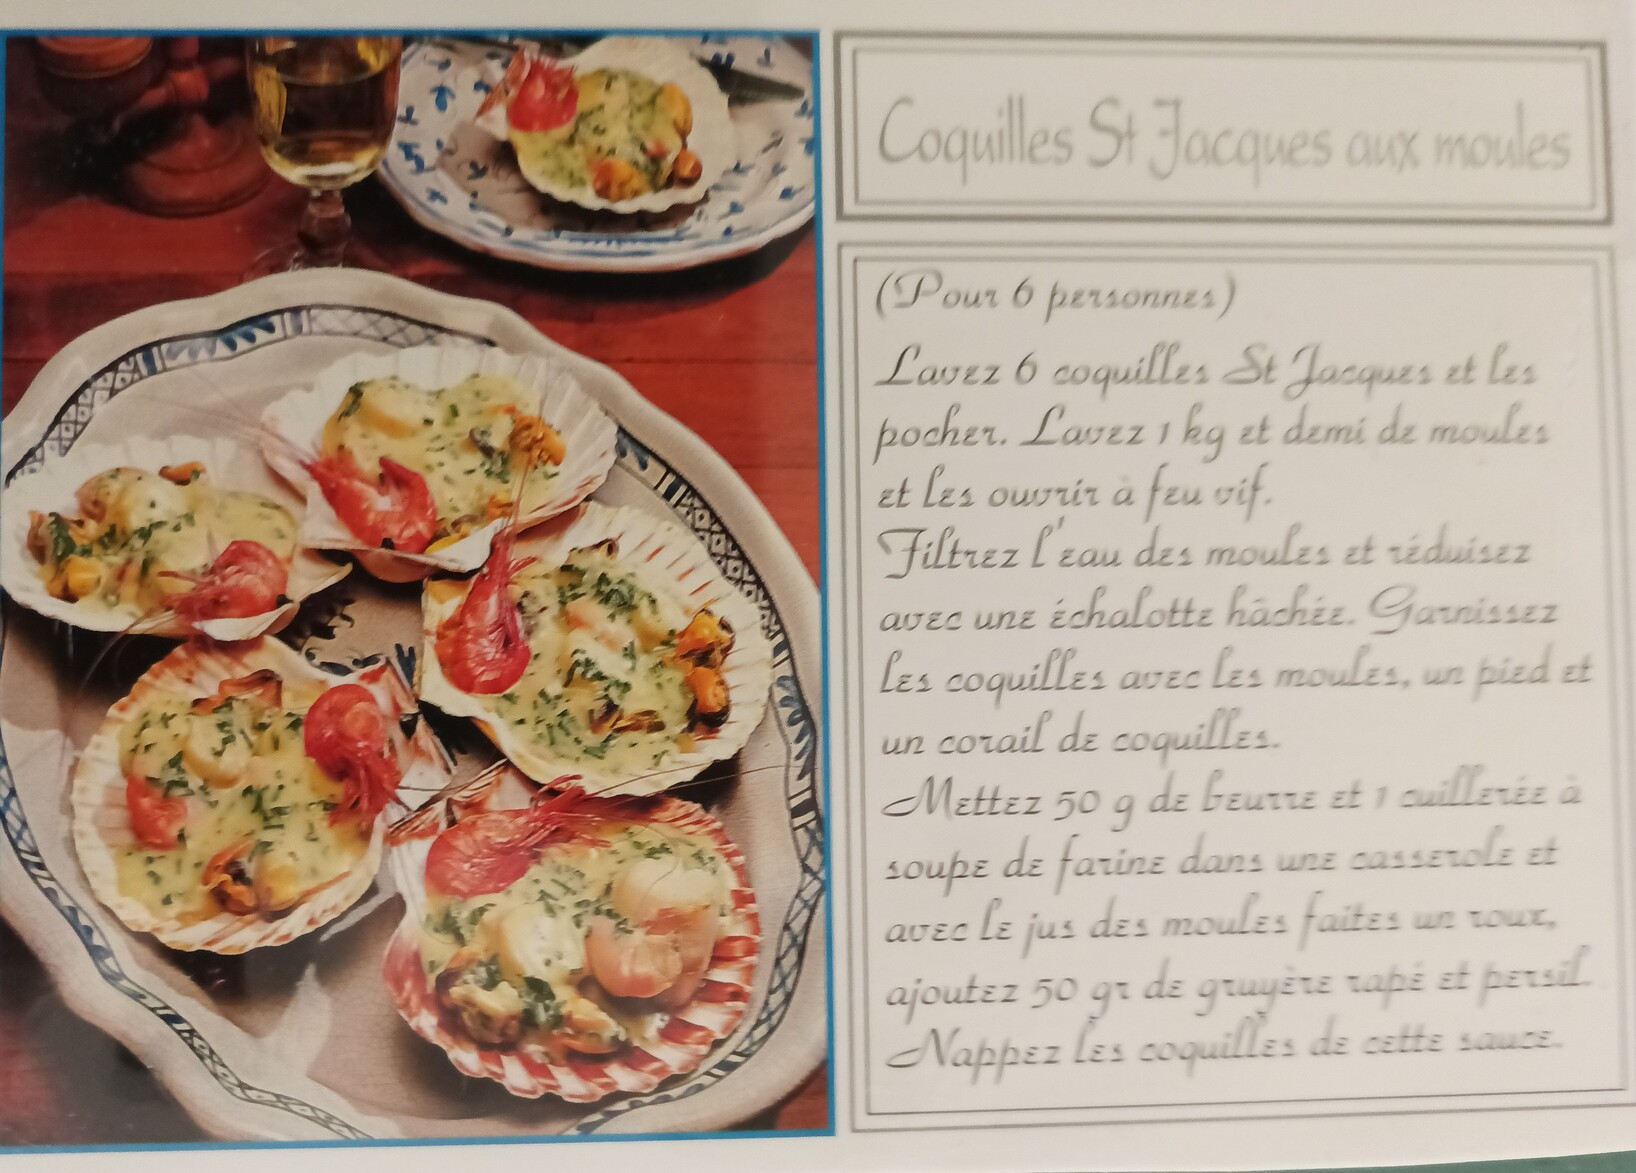 Coquilles St Jacques aux moules
(Pour 6 personnes)
Lavez 6 coquilles St Jacques et les
pocher. Lavez 1 kg et demi de moules
et les ouvrir à feu vif.
Filtrez l'eau des moules et réduisez
avec une échalotte hâchée. Garnissez
les coquilles avec les moules, un pied et
un corail de coquilles.
Mettez 50 g de beurre et 1 cuillerée à
soupe de farine dans une casserole et
avec le jus des moules faites un roux,
ajoutez 50 gr de gruyère rapé et persil.
Nappez les coquilles de cette sauce.